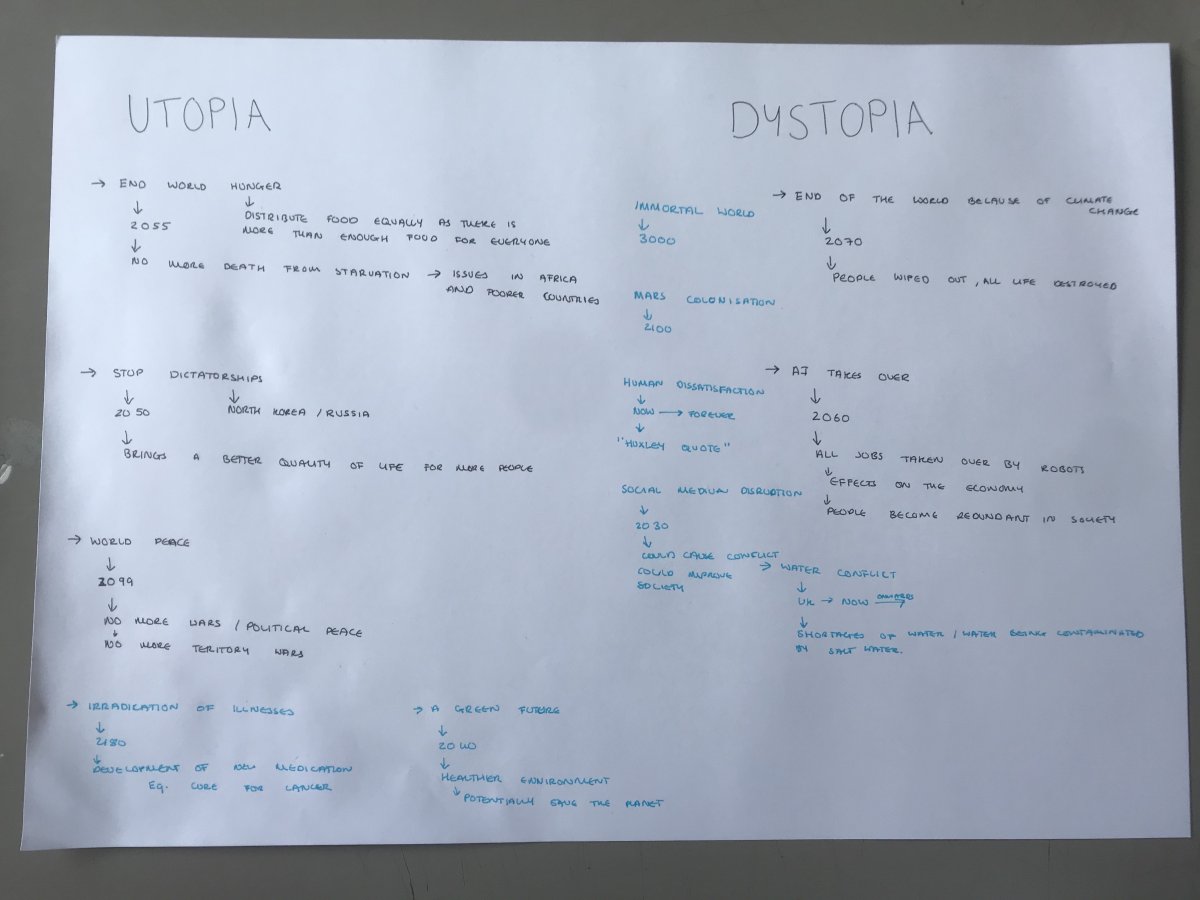 UTOPIA
→ END WORLD HUNGER
↓
DISTRIBUTE FOOD EQUALLY AS THERE IS
MORE THAN ENOUGH FOOD FOR EVERYONE
↓
2055
↓
NO MORE DEATH FROM STARVATION → ISSUES IN AFRICA
AND POORER COUNTRIES
→ STOP DICTATORSHIPS
↓
NORTH KOREA / RUSSIA
↓
2050
↓
BRINGS A BETTER QUALITY OF LIFE FOR MORE PEOPLE
→ WORLD PEACE
↓
2099
↓
NO MORE WARS / POLITICAL PEACE
↓
NO MORE TERITORY WARS
→ IRRADICATION OF ILLNESSES
↓
2180
↓
DEVELOPMENT OF NEW MEDICATION
Eg. CURE FOR CANCER
→ A GREEN FUTURE
↓
2040
↓
HEALTHIER ENVIRONMENT
↓ POTENTIALLY SAVE THE PLANET
IMMORTAL WORLD
↓
3000
MARS COLONISATION
↓
2100
HUMAN DISSATISFACTION
↓
NOW → FOREVER
↓
"HUXLEY QUOTE"
SOCIAL MEDIUM DISRUPTION
↓
2030
↓
COULD CAUSE CONFLICT
COULD IMPROVE
SOCIETY
DYSTOPIA
→ END OF THE WORLD BECAUSE OF CLIMATE
CHANGE
↓
2070
↓
PEOPLE WIPED OUT, ALL LIFE DESTROYED
→ AI TAKES OVER
↓
2060
↓
ALL JOBS TAKEN OVER BY ROBOTS
↓ EFFECTS ON THE ECONOMY
↓
PEOPLE BECOME REDUNDANT IN SOCIETY
→ WATER CONFLICT
↓
UK → NOW ONWARDS →
↓
SHORTAGES OF WATER / WATER BEING CONTAMINATED
BY SALT WATER.